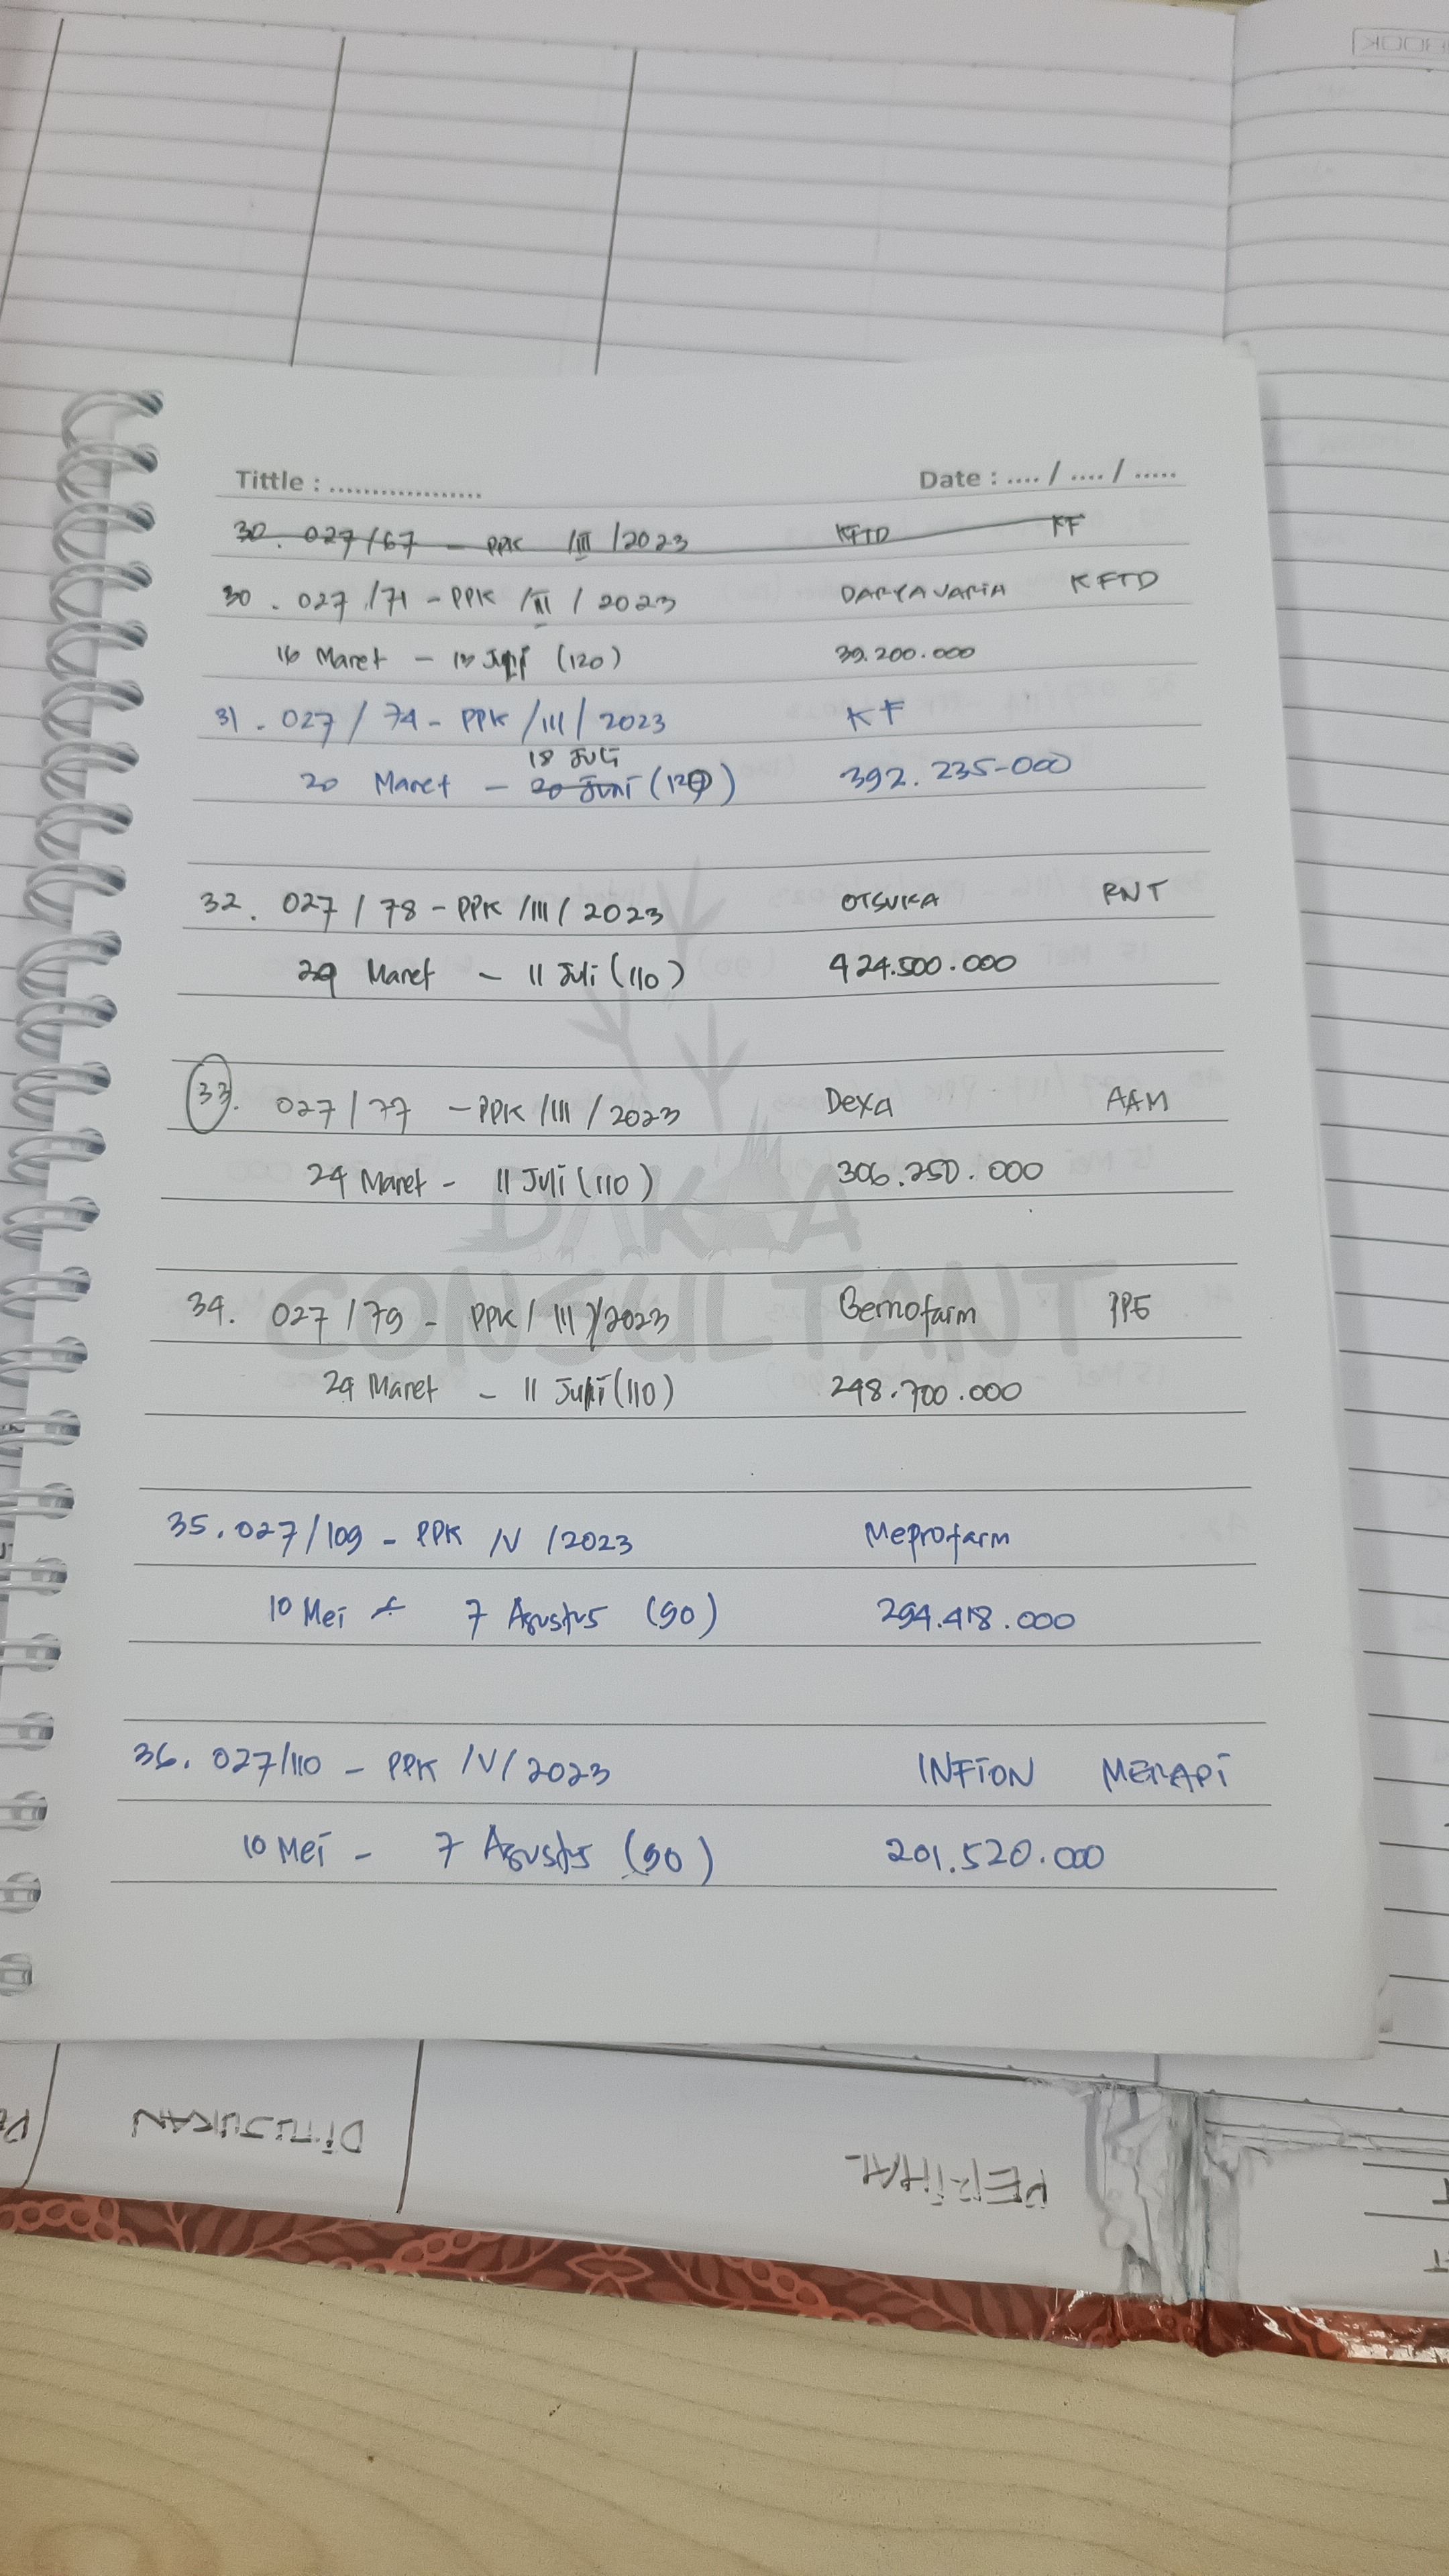 BOOK
Tittle : ..................
Date : .... / .... / .....
30. 027/67 - PPK /III /2023 KFTD KF
30. 027/71 - PPK /III / 2023 DARYAVARIA KFTD
16 Maret - 13 Juli (120) 39.200.000
31. 027 / 74 - PPK /III / 2023 KF
18 Juli
20 Maret - 20 Juni (120) 392.235-000
32. 027 / 78 - PPK /III / 2023 OTSUKA RNT
24 Maret - 11 Juli (110) 424.500.000
33. 027 / 77 - PPK /III / 2023 Dexa AAM
24 Maret - 11 Juli (110) 306.250.000
DAKTA
CONSULTANT
34. 027 / 79 - PPK / III / 2023 Bernofarm PPG
24 Maret - 11 Juli (110) 248.700.000
35. 027/109 - PPK /V /2023 Meprofarm
10 Mei - 7 Agustus (90) 294.418.000
36. 027/110 - PPK /V/ 2023 INFION MERAPI
10 Mei - 7 Agustus (90) 201.520.000
DITUJUKAN
PERIHAL